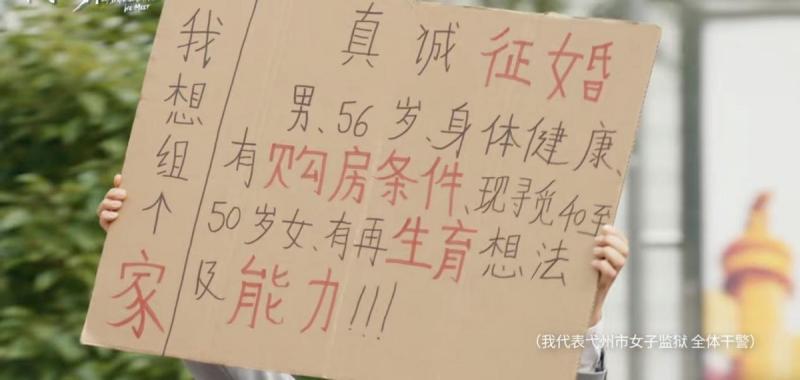 We Meet
我想组个家
真诚征婚
男、56岁、身体健康、
有购房条件、现寻觅40至
50岁女、有再生育想法
及能力!!!
（我代表弋州市女子监狱 全体干警）